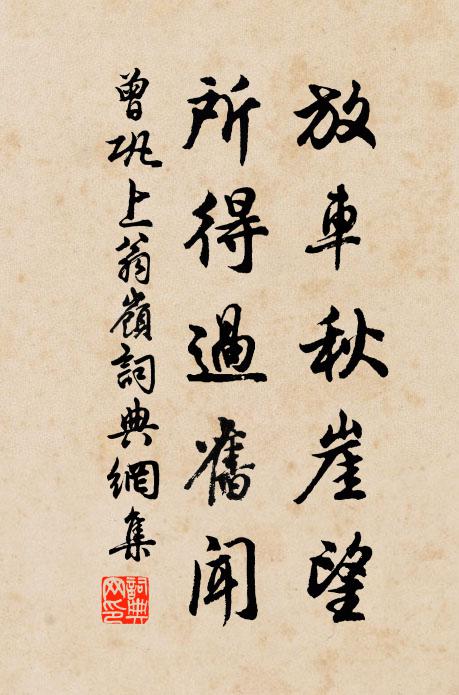 放車秋崖望
所得過舊聞
曾鞏上翁嶺詞典網集
詞典網印